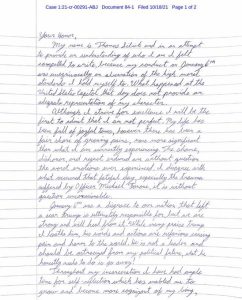 Case 1:21-cr-00291-ABJ Document 84-1 Filed 10/18/21 Page 1 of 2
Your Honor,
My name is Thomas Sibick and is an attempt
to provide an understanding of who I am I felt
compelled to write, because my conduct on January 6th
are suspiciously an aberration of the high moral
standards I hold myself to. What happened at the
United States Capitol that day does not provide an
adequate representation of my character.
Although I strive for excellence I will be the
first to admit that I am not perfect. My life has
been full of joyful times, however there has been a
fair share of growing pains, none more significant
than what I am currently experiencing. The shame,
dishonor, and regret endured are without question
the worst emotions ever experienced. I disagree with
what occurred that fateful day, especially the trauma
suffered by Officer Michael Fanone, it is without
question unconscionable.
January 6th was a disgrace to our nation that left
a scar Trump is ultimately responsible for, but we are
strong and will heal from it. While many praise Trump
I loathe him, his words and actions are nefarious causing
pain and harm to the world. He is not a leader and
should be ostracized from any political future, what he
honestly needs to do is go away!
Throughout my incarceration I have had ample
time for self-reflection which has enabled me to
grow and become more cognizant of my